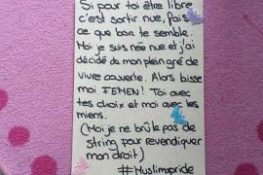 Si pour toi être libre
c'est sortir nue, fais
ce que bon te semble.
Moi je suis née nue et j'ai
décidé de mon plein gré de
vivre couverte. Alors baisse
moi FEMEN! Toi avec
tes choix et moi avec les
miens.
(Moi je ne brûle pas de
string pour revendiquer
mon droit)
#Muslimpride